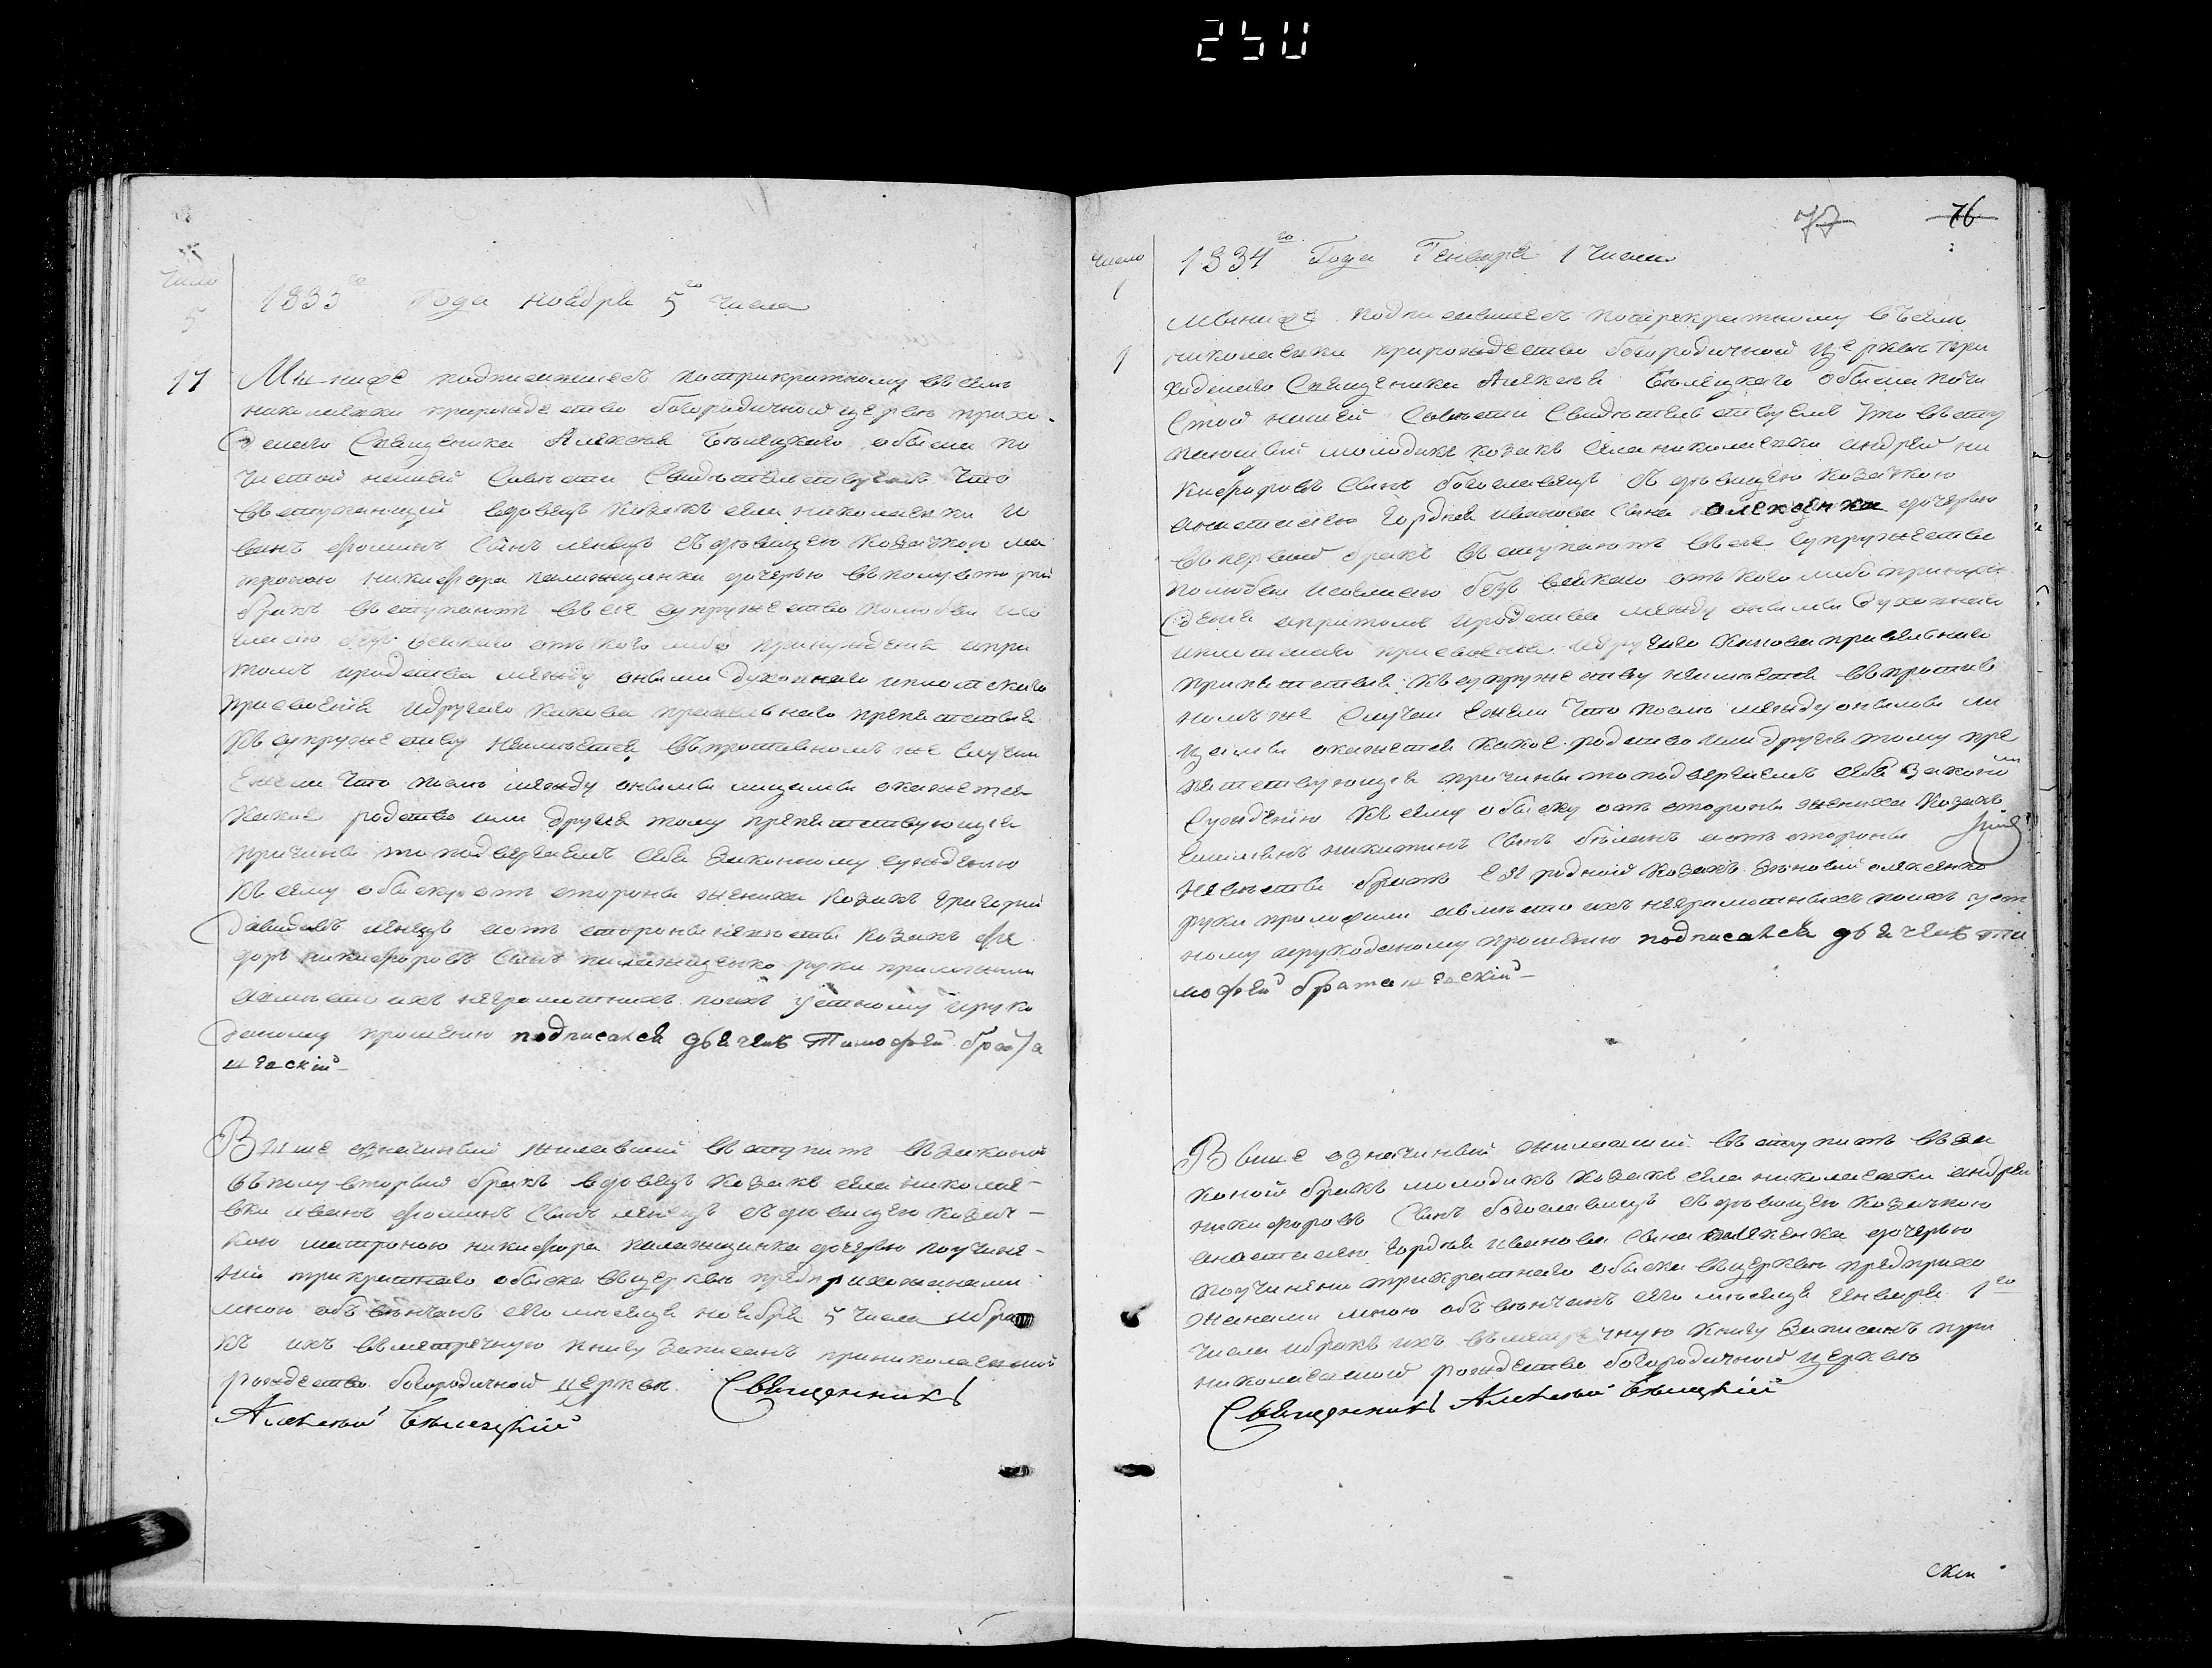 250
Число
5
1833го Года ноября 5го числа
17
Мы ниже подписавшиеся по трикратному в селе
николаевки прирождество богородичной церкви прихо-
дскаго Священика Алексея Белецкаго обыска по
чистой нашей Совести Свидетельствуемъ что
вступающий вдовецъ козакъ села николаевки И
ванъ фоминъ Сынъ з девицею козачкою ма
троною никифора дочерью вполувторий
бракъ вступаютъ в сие супружество полюбви исо
гласию безъ всякаго отъ кого либо принуждения ипри
томъ иродства между оными духовнаго иплотскаго
присвоения идругаго какова правильнаго препятствия
къ супружеству неимеется въ противномъ же случаи
Ежели что после между оными лицами окажется
какое родство или другия тому препятствующия
причины то подвергаемъ себя законному суждению
къ сему обыску отъ стороны жениха козакъ григорий
давидовъ аотъ стороны невесты козакъ фе
доръ никифоровъ Сынъ руки приложили
авместо ихъ неграмотнихъ поихъ устному ируко
даному прошению подписался дьячекъ Тимофей брата
щаский
Выше означиный желавший вступить взаконой
вполувторый бракъ вдовецъ козакъ села николае-
вки иванъ фоминъ Сынъ з девицею козач-
кою матроною никифора дочерью поучине-
нии трикратнаго обыска вцеркви предприхожанами
мною объвенчанъ сего месяца ноября 5 числа ибра
къ ихъ вметричную книгу записанъ приниколаевской
рождество богородичной церкви. Священникъ
Алексей Белецкий
77 76
Число
1
1834го Года Генваря 1 числа
1
Мы ниже подписавшиеся потрикратному въ селе
николаевки прирождество богородичной церкви при
ходскаго Священика Алексея Белецкаго обыска почи
стой нашей Совести Свидетельствуемъ что всту
пающий молодикъ козакъ села николаевки андрей ни
кифоровъ Сынъ з девицею козачкою
анастасиею гордея иванова Сына олексенка дочерью
впервий бракъ вступаютъ в сие супружество
полюбви исогласию безъ всякаго отъ кого либо принуж
дения ипритомъ иродства между оными духовнаго
иплотскаго присвоения идругаго какова правильнаго
препятствия къ супружеству неимеется впротив
номъ же случаи Ежели что после между оными ли
цами окажется какое родство или другия тому пре
пятствующия причины то подвергаемъ себя законо
суждению къ сему обыску отъ стороны жениха козакъ
никитинъ Сынъ аотъ стороны
невесты братъ Ея родной козакъ олексенко
руки приложили авместо ихъ неграмотныхъ поихъ уст
ному ирукоданому прошению подписался дьячекъ ти
мофей братащаский
Выше означиный желавший вступить вза
коной бракъ молодикъ козакъ села николаевки андрей
никифоровъ Сынъ з девицею козачкою
анастасиею гордея иванова Сына олексенка дочерью
поучинени трикратнаго обыска вцеркви предприхо
жанами мною объвенчанъ сего месяца Енваря 1го
числа ибракъ ихъ въ метричную книгу записанъ при
николаевской рождество богородичной церкви
Священникъ Алексей Белецкий